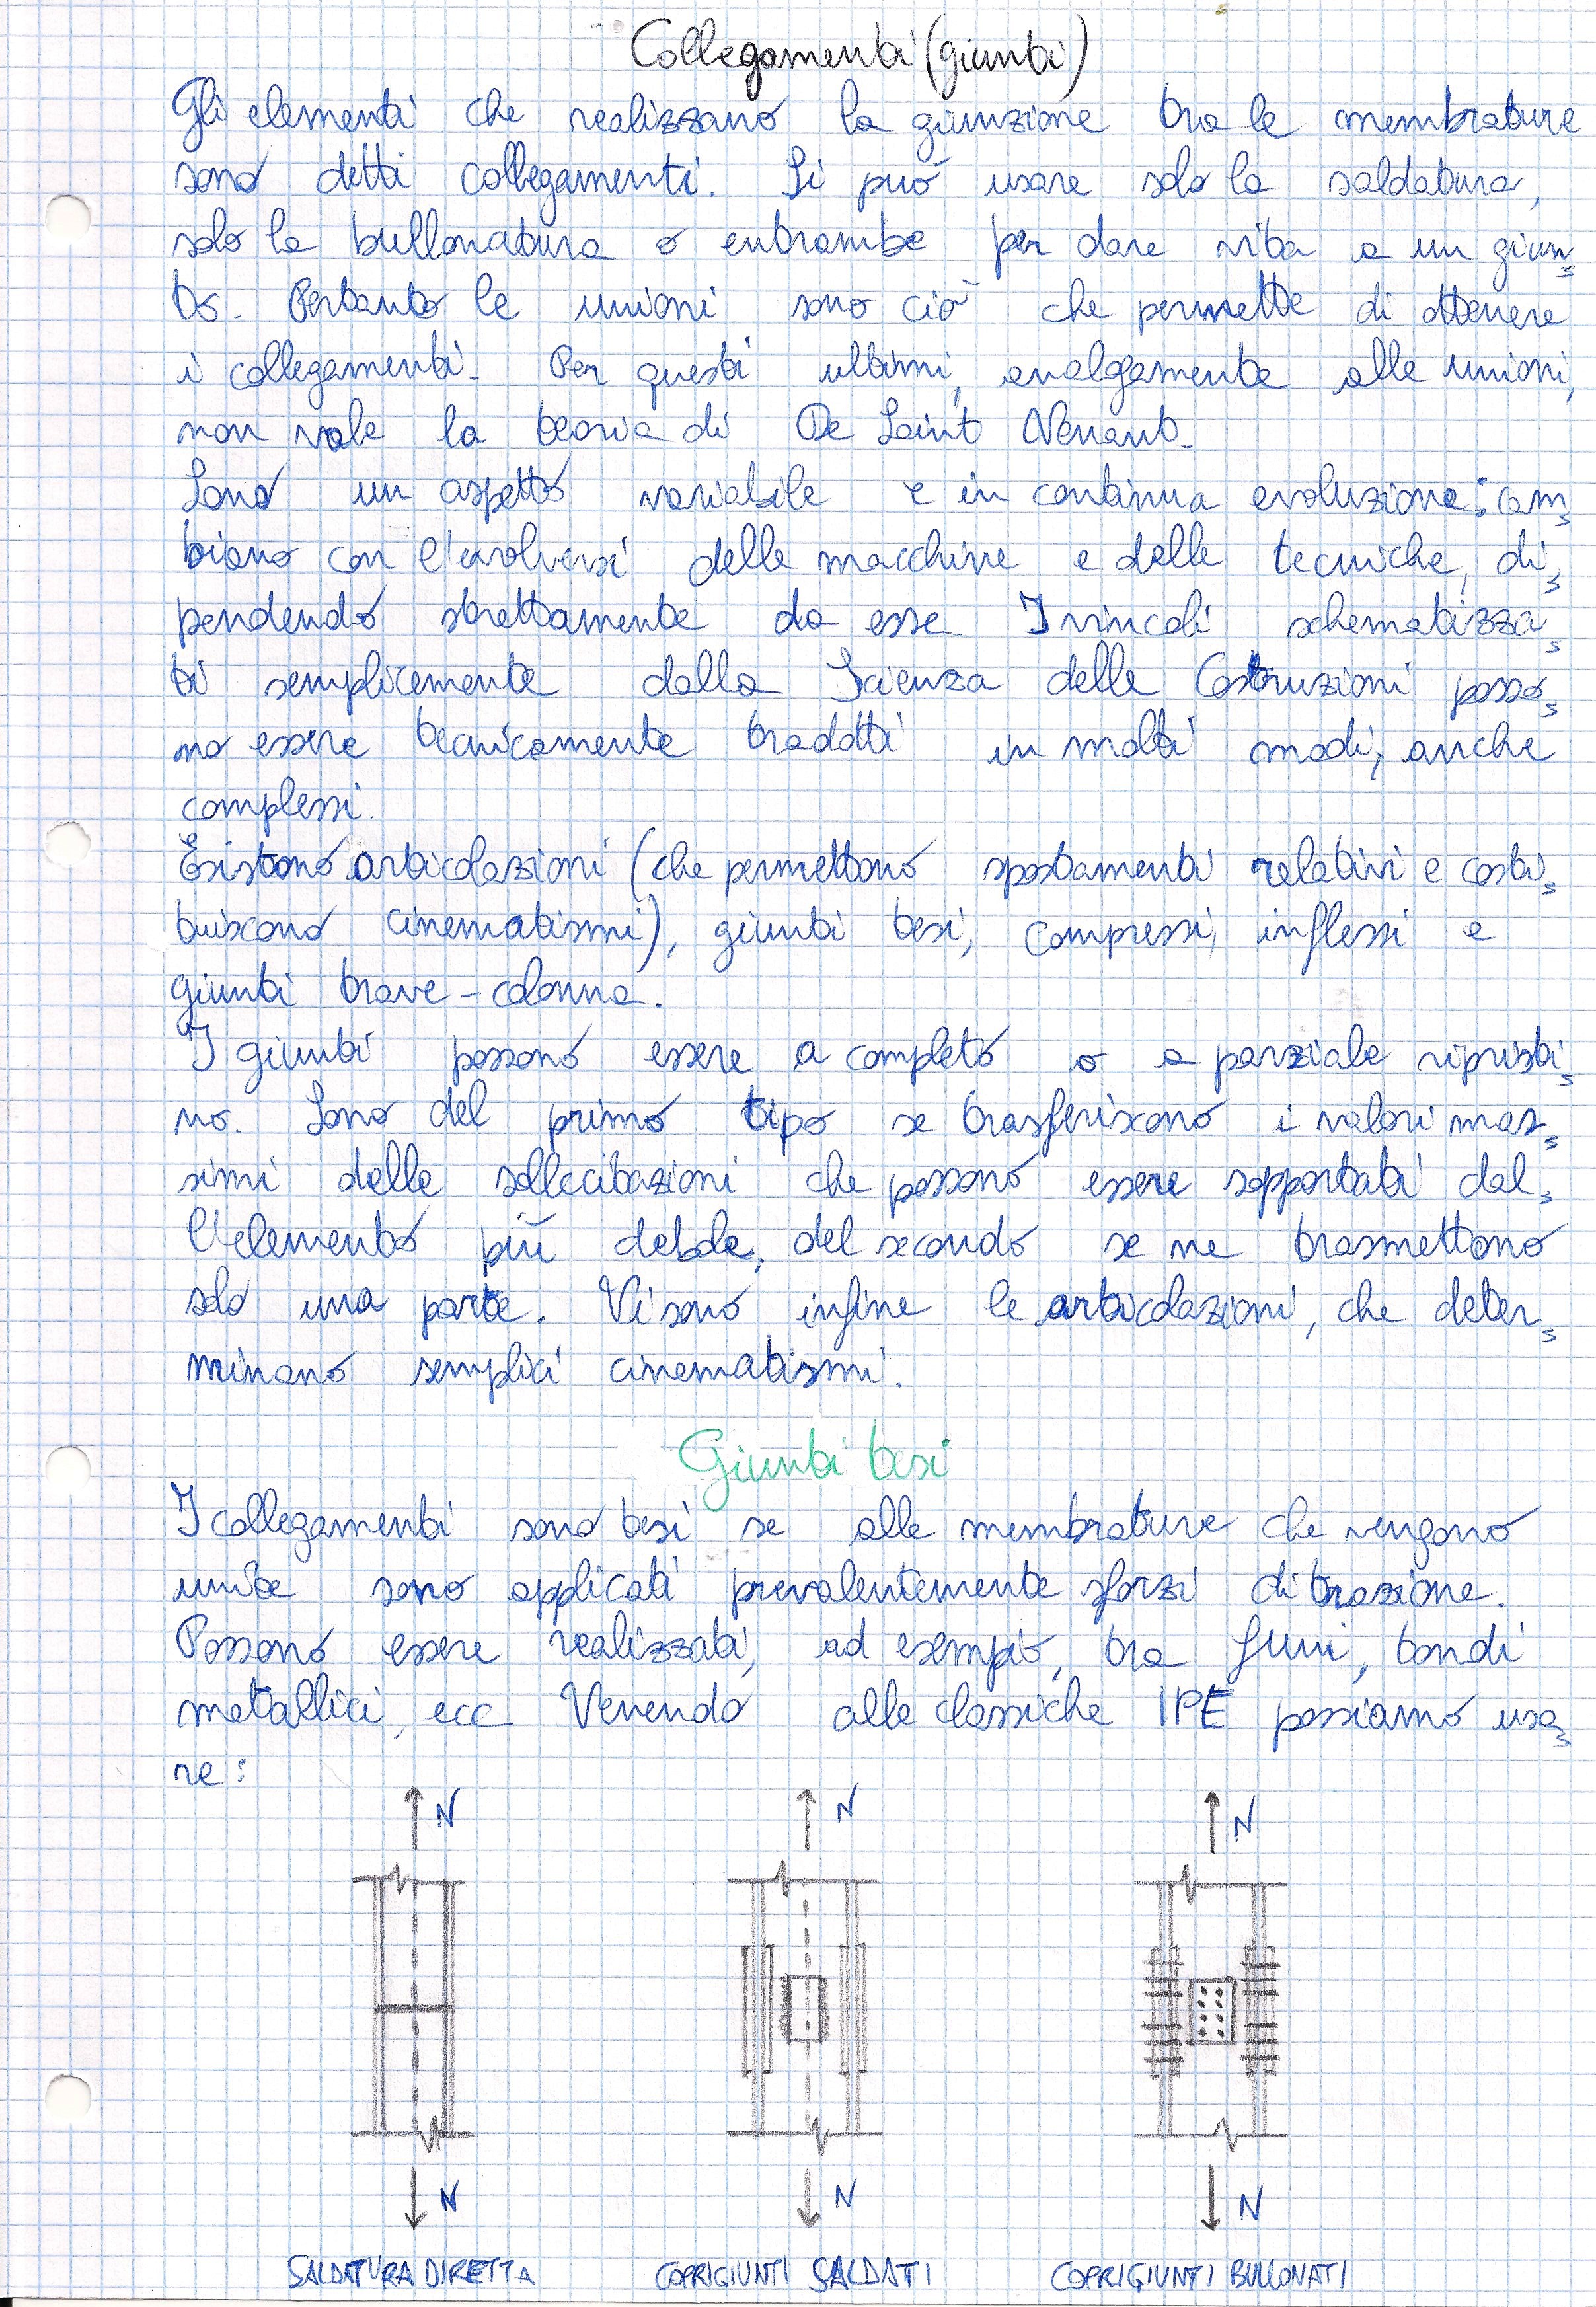 Collegamenti (giunti)
Gli elementi che realizzano la giunzione tra le membrature
sono detti collegamenti. Si può usare solo la saldatura,
solo la bullonatura o entrambe per dare vita a un giun=
to. Pertanto le unioni sono ciò che permette di ottenere
i collegamenti. Per questi ultimi, analogamente alle unioni,
non vale la teoria di De Saint Venant.
Sono un aspetto variabile e in continua evoluzione: cam=
biano con l'evolversi delle macchine e delle tecniche, di=
pendendo strettamente da esse I vincoli schematizza=
ti semplicemente dalla Scienza delle Costruzioni posso=
no essere tecnicamente tradotti in molti modi, anche
complessi.
Esistono articolazioni (che permettono spostamenti relativi e costi=
tuiscono cinematismi), giunti tesi, compressi, inflessi e
giunti trave-colonna.
I giunti possono essere a completo o a parziale ripristi=
no. Sono del primo tipo se trasferiscono i valori mas=
simi delle sollecitazioni che possono essere sopportati dal=
l'elemento più debole, del secondo se ne trasmettono
solo una parte. Vi sono infine le articolazioni, che deter=
minano semplici cinematismi.
Giunti tesi
I collegamenti sono tesi se alle membrature che vengono
unite sono applicati prevalentemente sforzi di trazione.
Possono essere realizzati, ad esempio, tra funi, tondi
metallici, ecc Venendo alle classiche IPE possiamo usa=
re:
N N N
N N N
SALDATURA DIRETTA COPRIGIUNTI SALDATI COPRIGIUNTI BULLONATI